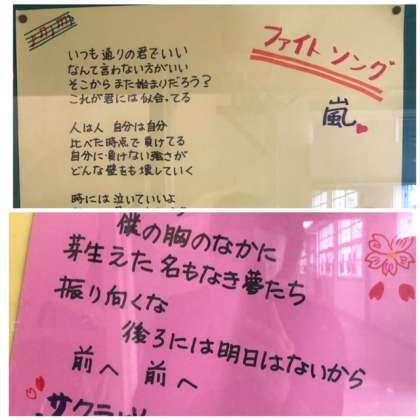 ファイトソング
嵐
いつも通りの君でいい
なんて言わない方がいい
そこからまた始まりだろう?
これが君には似合ってる
人は人 自分は自分
比べた時点で負けてる
自分に負けない強さが
どんな壁をも壊していく
時には泣いていいよ
僕の胸のなかに
芽生えた名もなき夢たち
振り向くな
後ろには明日はないから
前へ 前へ
サクラッ